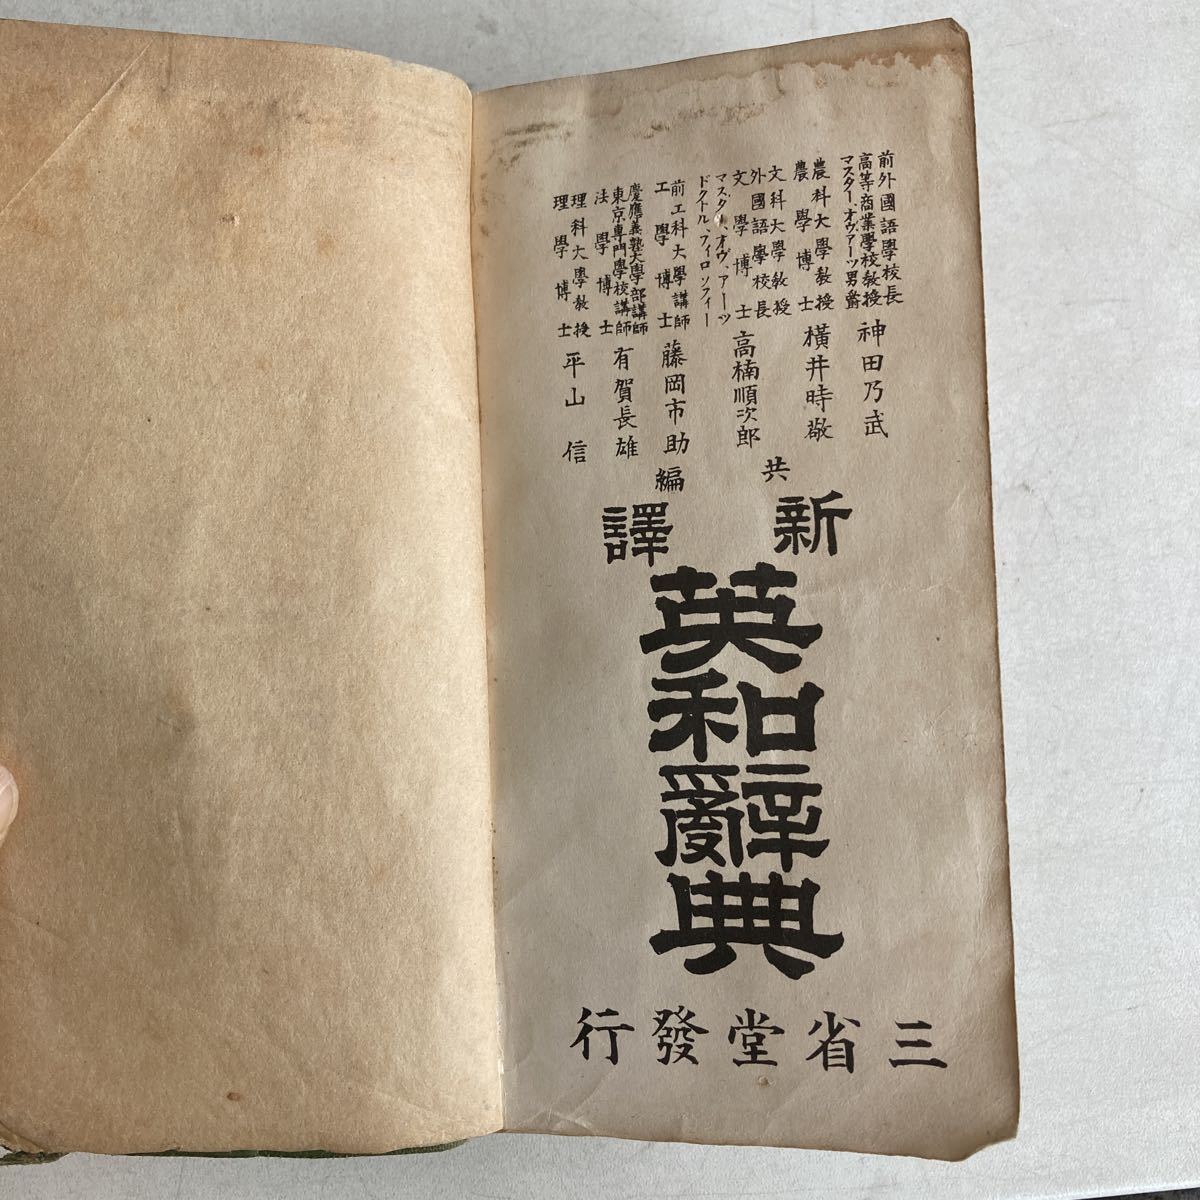 前外國語學校長
高等商業學校敎授
マスター、オヴ、アーツ男爵
神田乃武
農科大學敎授
農學博士
橫井時敬
文科大學敎授
外國語學校長
文學博士
マスター、オヴ、アーツ
ドクトル、フィロソフィー
高楠順次郎
前工科大學講師
工學博士
藤岡市助
慶應義塾大學部講師
東京專門學校講師
法學博士
有賀長雄
理科大學敎授
理學博士
平山信
共編
新譯
英和辭典
三省堂發行